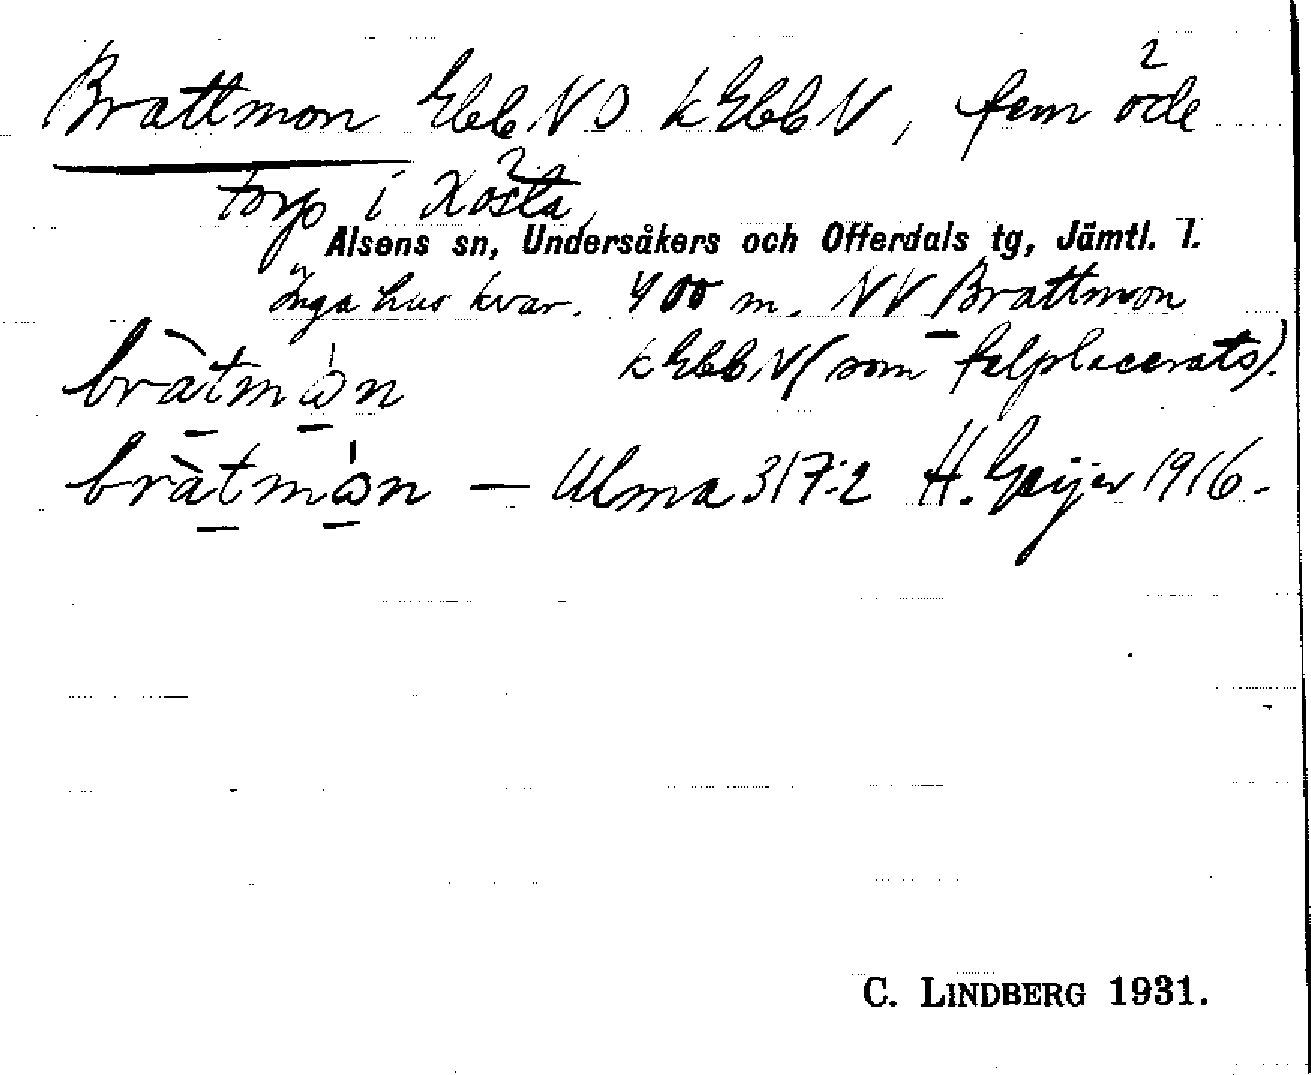 Brattmon Ebb NO kEbbN, fem öde
torp i Kösta,
Alsens sn, Undersåkers och Offerdals tg, Jämtl. l.
Inga hus kvar. 400 m. NV Brattmon
kEbbN (som felplacerats).
bràtmòn
bràtmòn — Ulma 317:2 H. Geijer 1916.
C. LINDBERG 1931.